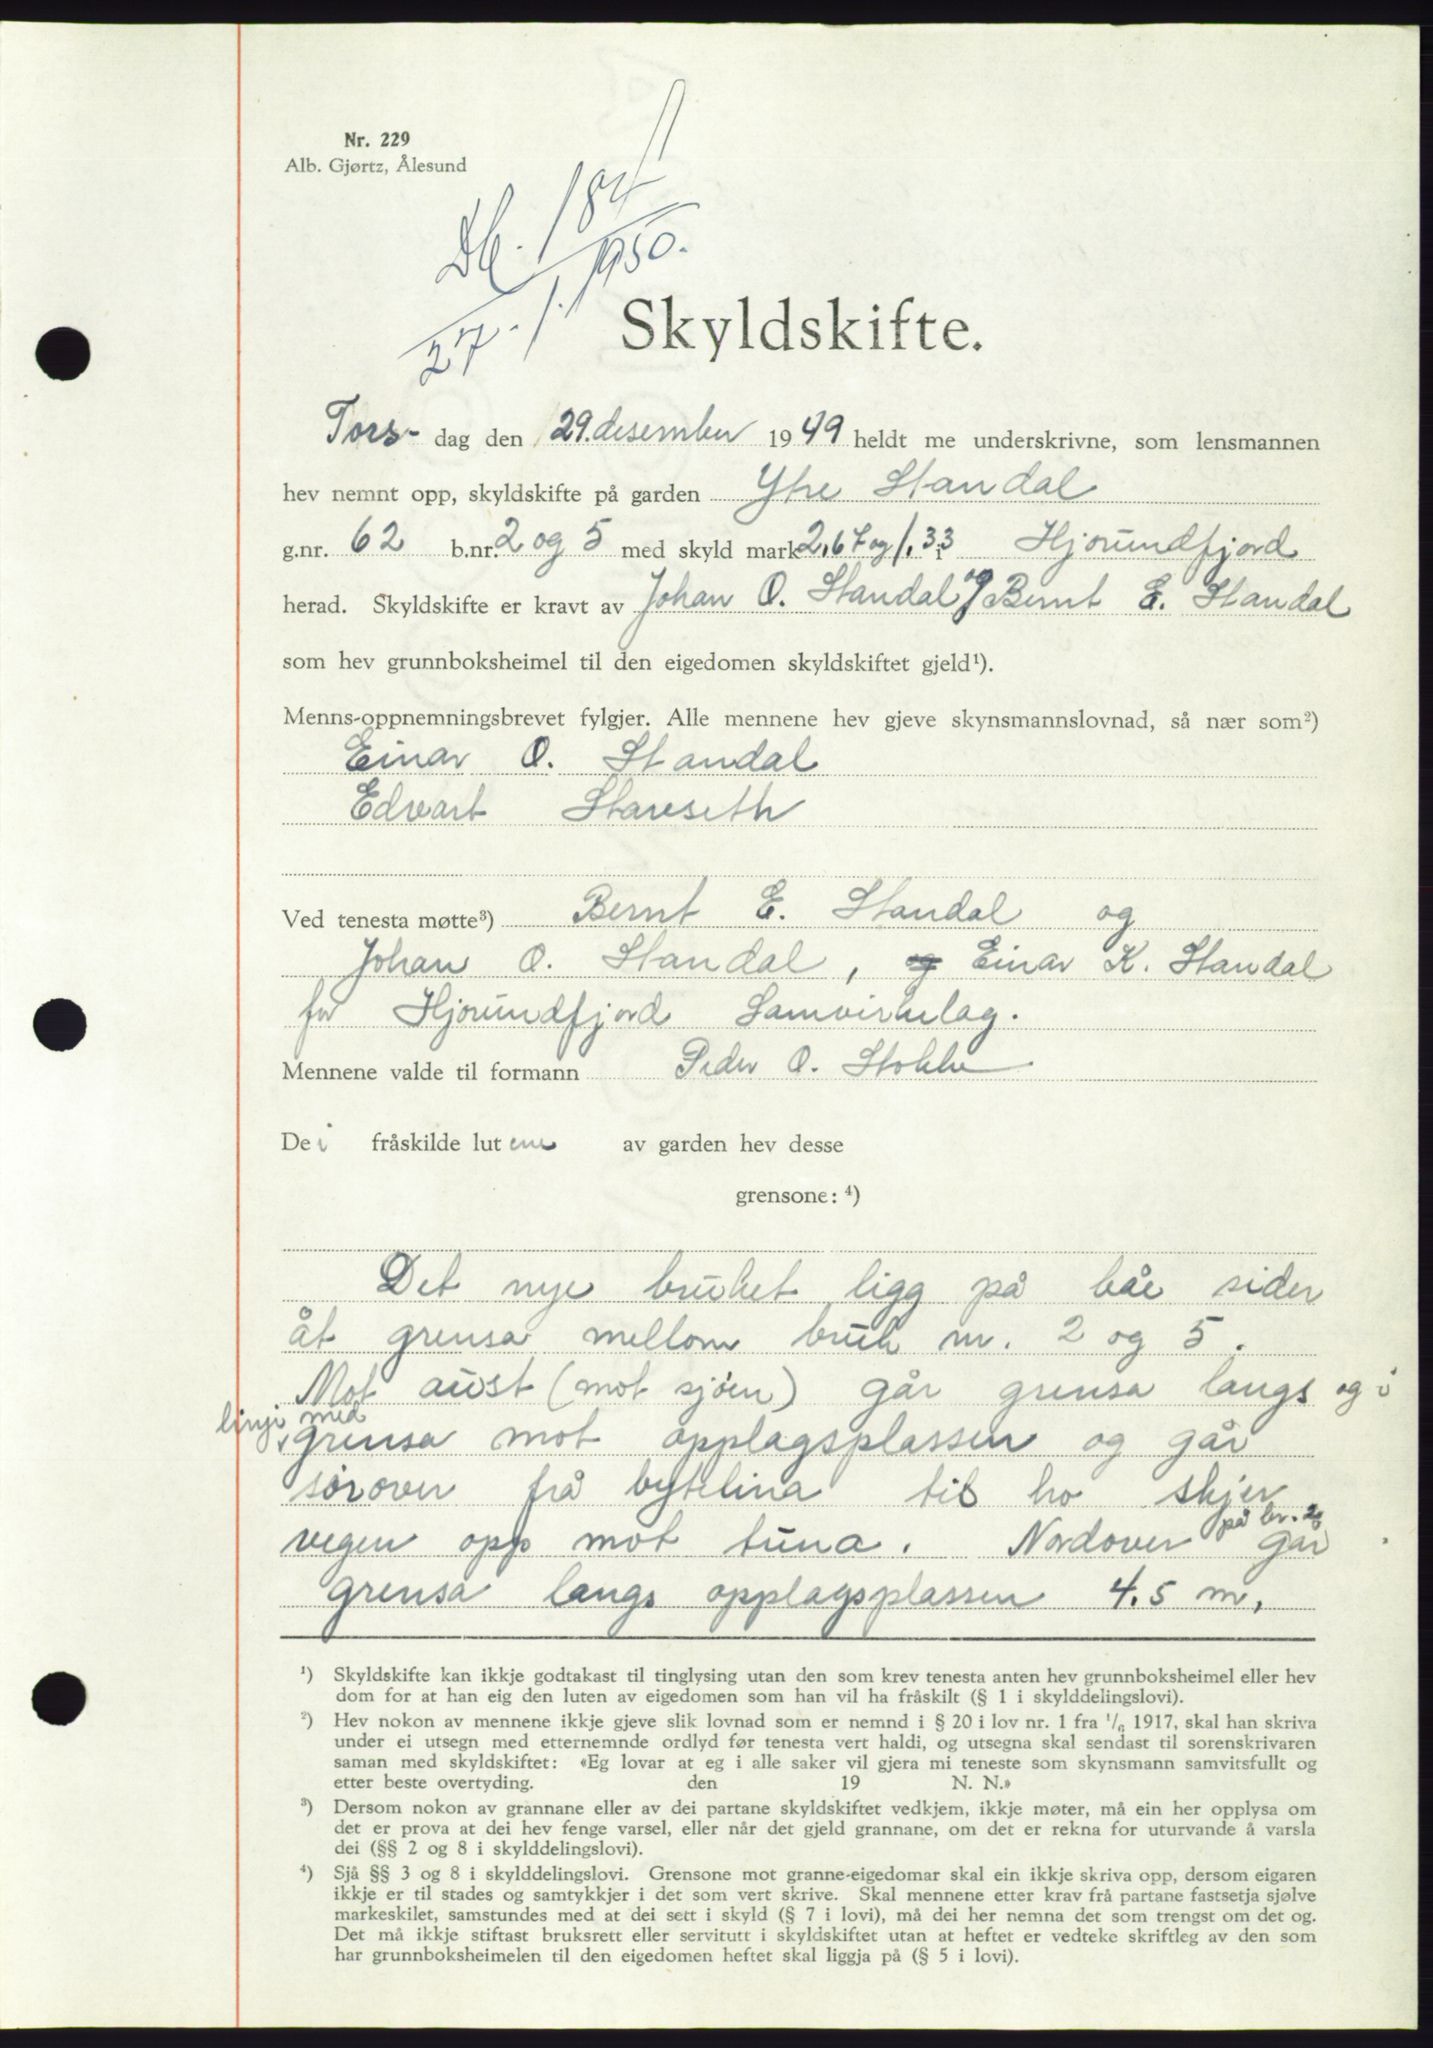 Nr. 229
Alb. Gjørtz, Ålesund
Db. 184
27. 1. 1950.
Skyldskifte.
Tors- dag den 29. desember 1949 heldt me underskrivne, som lensmannen
hev nemnt opp, skyldskifte på garden Ytre Standal
g.nr. 62 b.nr. 2 og 5 med skyld mark 2,67 og 1.33 i Hjorundfjord
herad. Skyldskifte er kravt av Johan O. Standal og Bernt E. Standal
som hev grunnboksheimel til den eigedomen skyldskiftet gjeld¹).
Menns-oppnemningsbrevet fylgjer. Alle mennene hev gjeve skynsmannslovnad, så nær som²)
Einar O. Standal
Edvart Stavseth
Ved tenesta møtte³) Bernt E. Standal og
Johan O. Standal, og Einar K. Standal
for Hjorundfjord Samvirkelag.
Mennene valde til formann Peder O. Stokke
Dei fråskilde lutene av garden hev desse
grensone: ⁴)
Det nye bruket ligg på båe sider
åt grensa mellom bruk nr. 2 og 5.
Mot aust (mot sjøen) går grensa langs og i
linje med
grensa mot opplagsplassen og går
sørover frå bytelina til ho skjer
vegen opp mot tuna. Nordover på br. 2 går
grensa langs opplagsplassen 4.5 m,
¹) Skyldskifte kan ikkje godtakast til tinglysing utan den som krev tenesta anten hev grunnboksheimel eller hev
dom for at han eig den luten av eigedomen som han vil ha fråskilt (§ 1 i skylddelingslovi).
²) Hev nokon av mennene ikkje gjeve slik lovnad som er nemnd i § 20 i lov nr. 1 fra ¹/₆ 1917, skal han skriva
under ei utsegn med etternemnde ordlyd før tenesta vert haldi, og utsegna skal sendast til sorenskrivaren
saman med skyldskiftet: «Eg lovar at eg i alle saker vil gjera mi teneste som skynsmann samvitsfullt og
etter beste overtyding. den 19 N. N.»
³) Dersom nokon av grannane eller av dei partane skyldskiftet vedkjem, ikkje møter, må ein her opplysa om
det er prova at dei hev fenge varsel, eller når det gjeld grannane, om det er rekna for uturvande å varsla
dei (§§ 2 og 8 i skylddelingslovi).
⁴) Sjå §§ 3 og 8 i skylddelingslovi. Grensone mot granne-eigedomar skal ein ikkje skriva opp, dersom eigaren
ikkje er til stades og samtykkjer i det som vert skrive. Skal mennene etter krav frå partane fastsetja sjølve
markeskilet, samstundes med at dei sett i skyld (§ 7 i lovi), må dei her nemna det som trengst om det og.
Det må ikkje stiftast bruksrett eller servitutt i skyldskiftet utan at heftet er vedteke skriftleg av den som
har grunnboksheimelen til den eigedomen heftet skal liggja på (§ 5 i lovi).